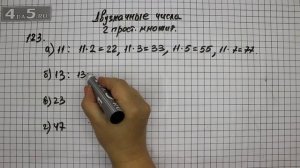 4 5
Двузначные числа
2 прост. множит.
123.
а) 11: 11·2=22, 11·3=33, 11·5=55, 11·7=77
б) 13: 13
в) 23
г) 47